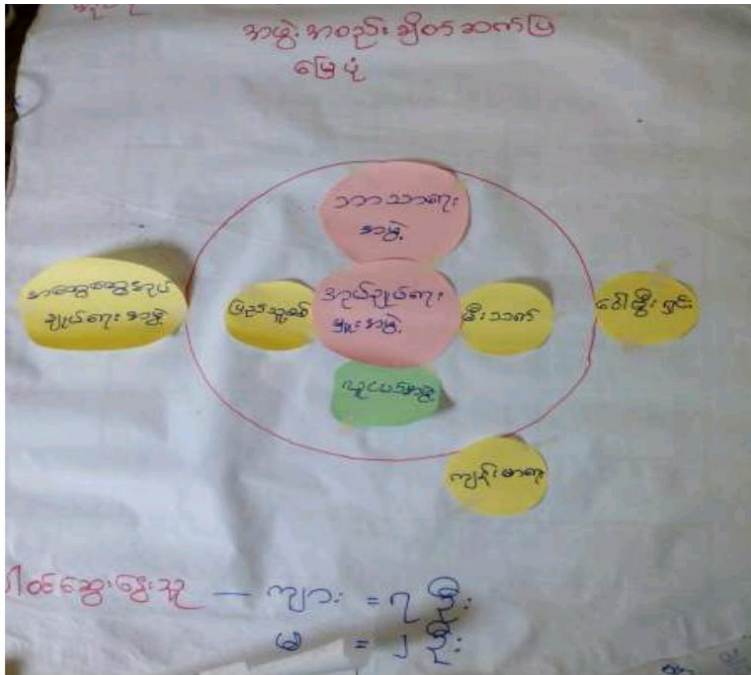 အဖွဲ့အစည်းချိတ်ဆက်ပြ
မြေပုံ
ဘာသာရေး
အဖွဲ့
အထွေထွေအုပ်
ချုပ်ရေးအဖွဲ့
ပြည်သူ့စစ်
အုပ်ချုပ်ရေး
မှူးအဖွဲ့
မီးသတ်
ဝေါဦးရှင်း
လူငယ်အဖွဲ့
ကျန်းမာရေး
ပါဝင်ဆွေးနွေးသူ — ကျား = ၇ ဦး
မ = ၂ ဦး